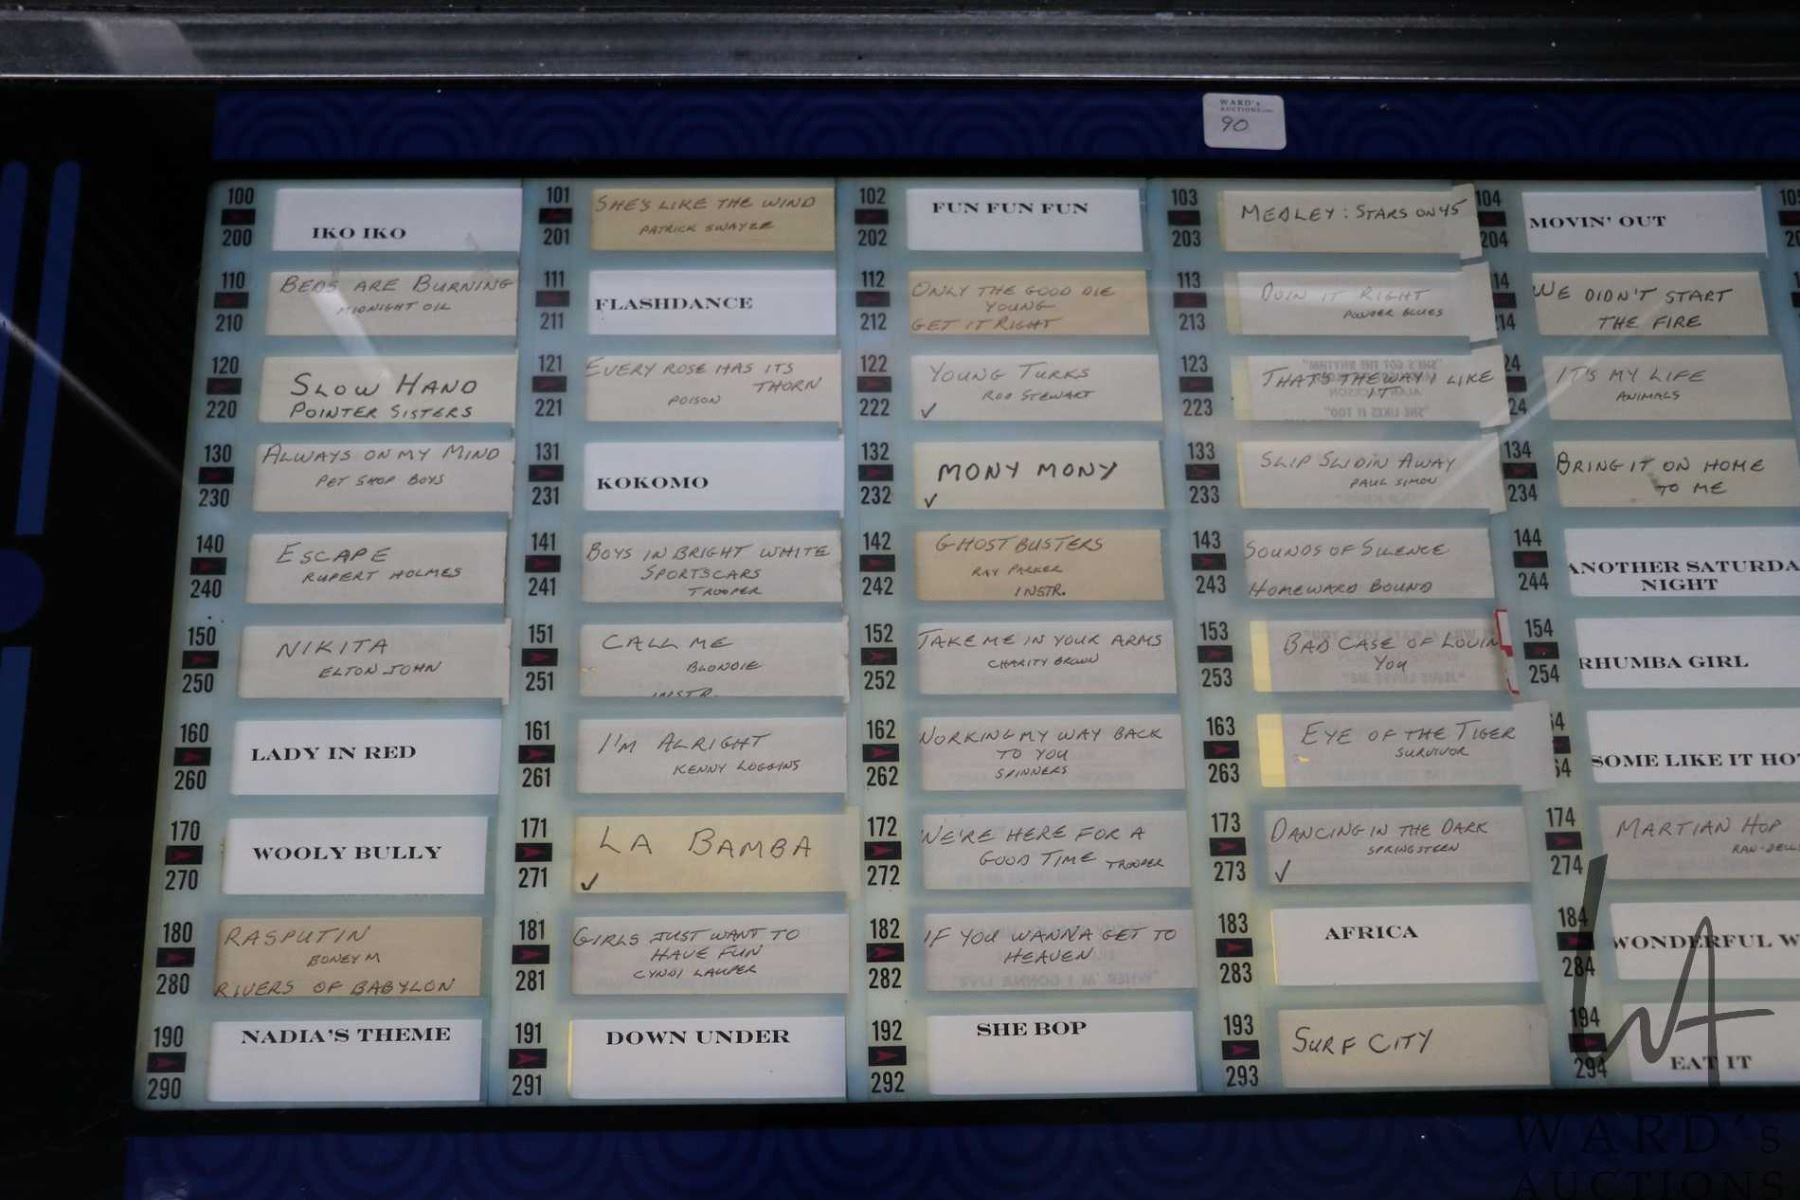 WARD's
AUCTIONS.com
90
100
200
IKO IKO
101
201
SHE'S LIKE THE WIND
PATRICK SWAYZE
102
202
FUN FUN FUN
103
203
MEDLEY: STARS ON 45
104
204
MOVIN' OUT
110
210
BEDS ARE BURNING
MIDNIGHT OIL
111
211
FLASHDANCE
112
212
ONLY THE GOOD DIE
YOUNG
GET IT RIGHT
113
213
DOIN IT RIGHT
POWDER BLUES
14
14
WE DIDN'T START
THE FIRE
120
220
SLOW HAND
POINTER SISTERS
121
221
EVERY ROSE HAS ITS
THORN
POISON
122
222
YOUNG TURKS
ROD STEWART
✓
123
223
THAT'S THE WAY I LIKE
IT
24
24
IT'S MY LIFE
ANIMALS
130
230
ALWAYS ON MY MIND
PET SHOP BOYS
131
231
KOKOMO
132
232
MONY MONY
✓
133
233
SLIP SLIDIN AWAY
PAUL SIMON
134
234
BRING IT ON HOME
TO ME
140
240
ESCAPE
RUPERT HOLMES
141
241
BOYS IN BRIGHT WHITE
SPORTSCARS
TROOPER
142
242
GHOSTBUSTERS
RAY PARKER
INSTR.
143
243
SOUNDS OF SILENCE
HOMEWARD BOUND
144
244
ANOTHER SATURDA
NIGHT
150
250
NIKITA
ELTON JOHN
151
251
CALL ME
BLONDIE
INSTR.
152
252
TAKE ME IN YOUR ARMS
CHARITY BROWN
153
253
BAD CASE OF LOVIN
YOU
154
254
RHUMBA GIRL
160
260
LADY IN RED
161
261
I'M ALRIGHT
KENNY LOGGINS
162
262
WORKING MY WAY BACK
TO YOU
SPINNERS
163
263
EYE OF THE TIGER
SURVIVOR
64
64
SOME LIKE IT HO
170
270
WOOLY BULLY
171
271
LA BAMBA
✓
172
272
WE'RE HERE FOR A
GOOD TIME TROOPER
173
273
DANCING IN THE DARK
SPRINGSTEEN
✓
174
274
MARTIAN HOP
RAN-DELL
180
280
RASPUTIN
BONEY M
RIVERS OF BABYLON
181
281
GIRLS JUST WANT TO
HAVE FUN
CYNDI LAUPER
182
282
IF YOU WANNA GET TO
HEAVEN
183
283
AFRICA
184
284
WONDERFUL W
190
290
NADIA'S THEME
191
291
DOWN UNDER
192
292
SHE BOP
193
293
SURF CITY
194
294
EAT IT
WA
WARD's
AUCTIONS